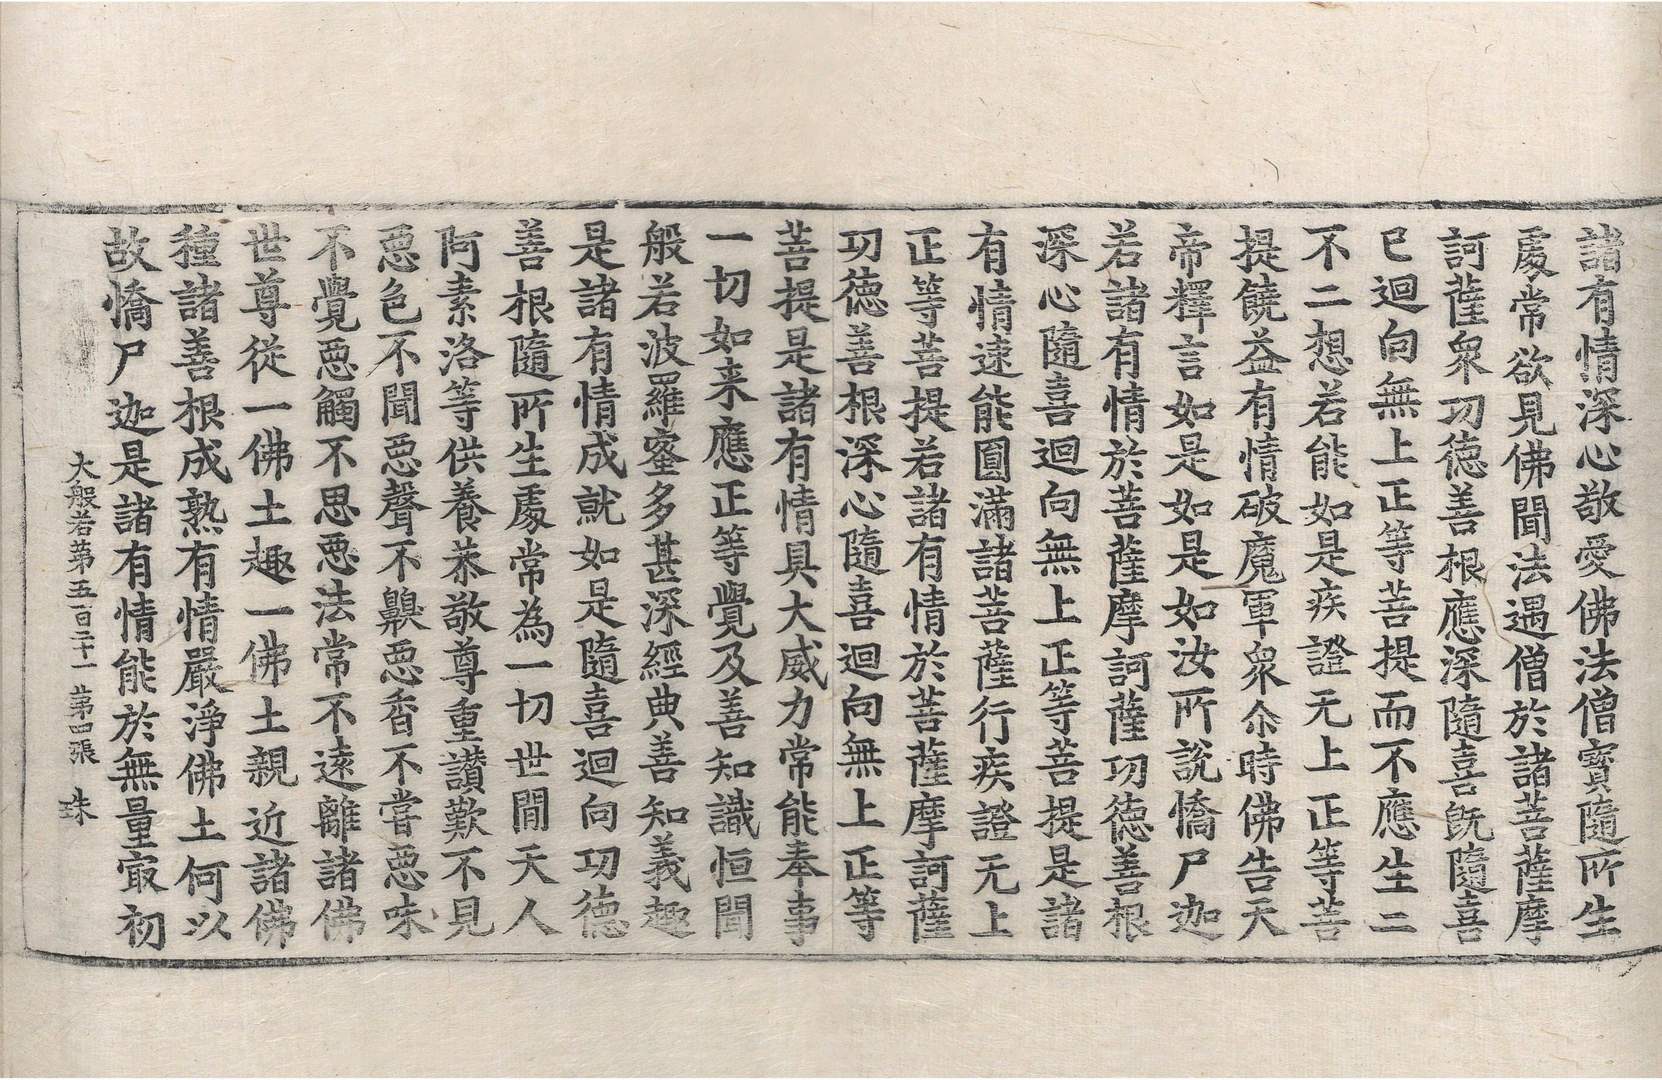 諸有情深心敬愛佛法僧寶隨所生
處常欲見佛聞法遇僧於諸菩薩摩
訶薩衆功德善根應深隨喜旣隨喜
已迴向無上正等菩提而不應生二
不二想若能如是疾證无上正等菩
提饒益有情破魔軍衆尒時佛告天
帝釋言如是如是如汝所說憍尸迦
若諸有情於菩薩摩訶薩功德善根
深心隨喜迴向無上正等菩提是諸
有情速能圓滿諸菩薩行疾證无上
正等菩提若諸有情於菩薩摩訶薩
功德善根深心隨喜迴向無上正等
菩提是諸有情具大威力常能奉事
一切如来應正等覺及善知識恒聞
般若波羅蜜多甚深經典善知義趣
是諸有情成就如是隨喜迴向功德
善根隨所生處常為一切世間天人
阿素洛等供養恭敬尊重讚歎不見
惡色不聞惡聲不齅惡香不嘗惡味
不覺惡觸不思惡法常不遠離諸佛
世尊從一佛土趣一佛土親近諸佛
種諸善根成熟有情嚴淨佛土何以
故憍尸迦是諸有情能於無量㝡初
大般若第五百二十一 第四張 珠